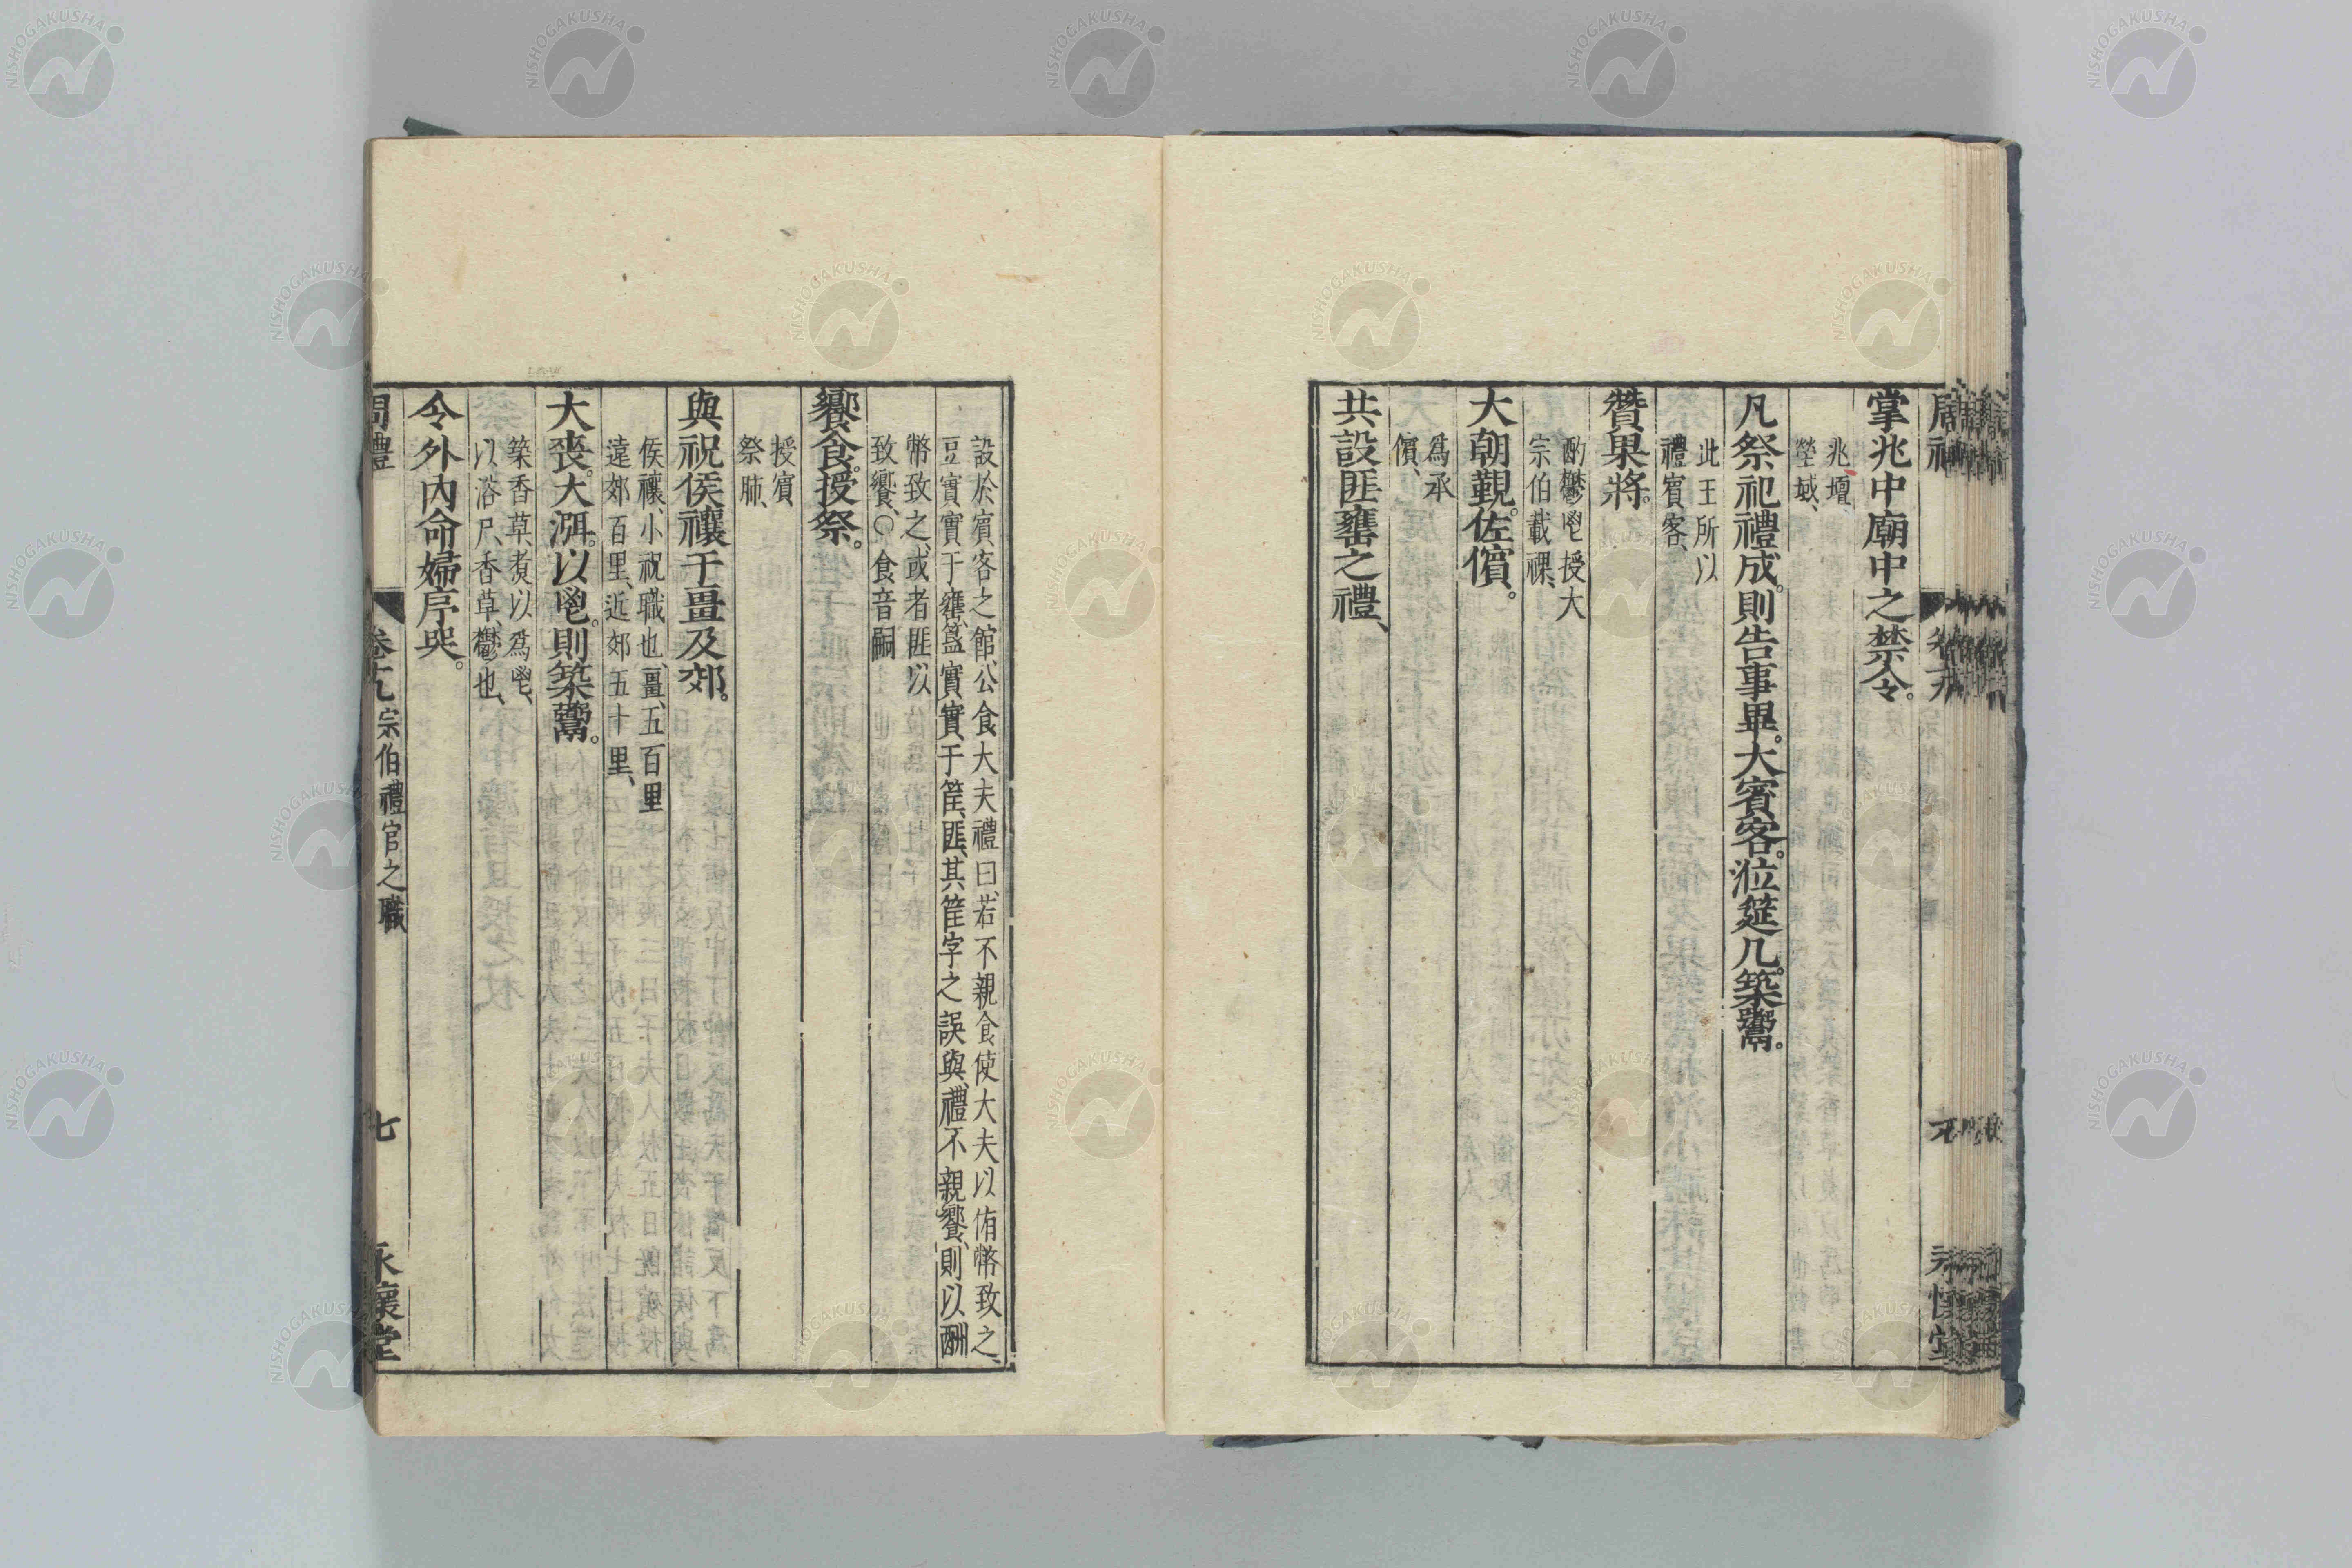 掌兆中廟中之禁令。
兆壇、
塋域、
凡祭祀禮成。則告事畢。大賓客。涖筵几。築鬻。
此王所以
禮賓客、
贊果將。
酌鬱鬯授大
宗伯載祼、
大朝覲。佐儐。
爲承
儐、
共設匪罋之禮、
設於賓客之館、公食大夫禮曰、若不親食使大夫以侑幣致之、
豆實實于罋、簋實實于筐、匪、其筐字之誤與、禮不親饗、則以酬
幣致之、或者匪以
致饗、○食音嗣
饗食。授祭。
授賓
祭肺、
與祝侯禳于畺及郊。
侯禳、小祝職也、畺、五百里
遠郊百里、近郊五十里、
大喪。大渳。以鬯。則築鬻。
築香草、煑以爲鬯、
以浴尸、香草、鬱也、
令外內命婦序哭。
周禮 卷十九 宗伯禮官之職 七 永懷堂
NISHOGAKUSHA